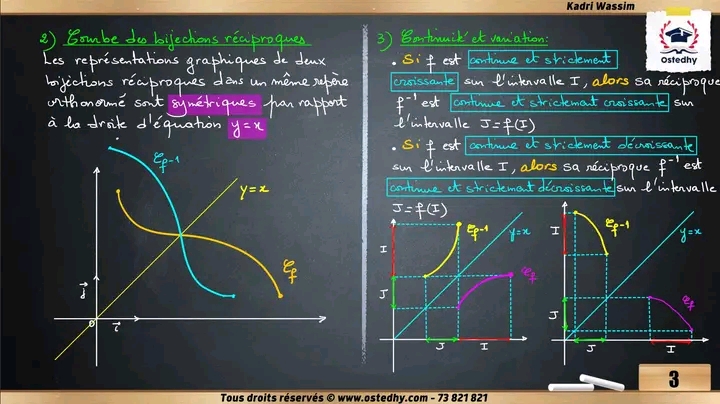 Kadri Wassim
Ostedhy
2) Courbe des bijections réciproques
Les représentations graphiques de deux
bijections réciproques dans un même repère
orthonormé sont symétriques par rapport
à la droite d'équation y=x
𝒞f-1
y=x
𝒞f
j
o
i
3) Continuité et variation:
• Si f est continue et strictement
croissante sur l'intervalle I, alors sa réciproque
f⁻¹ est continue et strictement croissante sur
l'intervalle J=f(I)
• Si f est continue et strictement décroissante
sur l'intervalle I, alors sa réciproque f⁻¹ est
continue et strictement décroissante sur l'intervalle
J=f(I)
I
𝒞f-1
y=x
J
𝒞f
J
I
I
𝒞f-1
y=x
J
𝒞f
J
I
3
Tous droits réservés © www.ostedhy.com - 73 821 821